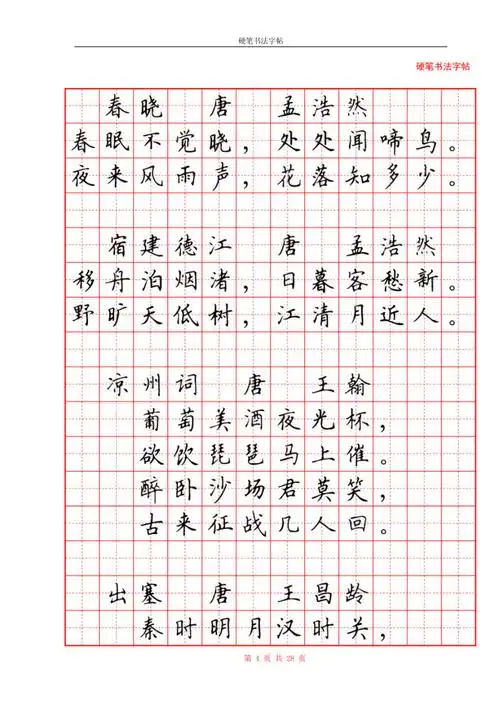 硬笔书法字帖
硬笔书法字帖
春晓 唐 孟浩然
春眠不觉晓，处处闻啼鸟。
夜来风雨声，花落知多少。
宿建德江 唐 孟浩然
移舟泊烟渚，日暮客愁新。
野旷天低树，江清月近人。
凉州词 唐 王翰
葡萄美酒夜光杯，
欲饮琵琶马上催。
醉卧沙场君莫笑，
古来征战几人回。
出塞 唐 王昌龄
秦时明月汉时关，
第 4 页 共 28 页